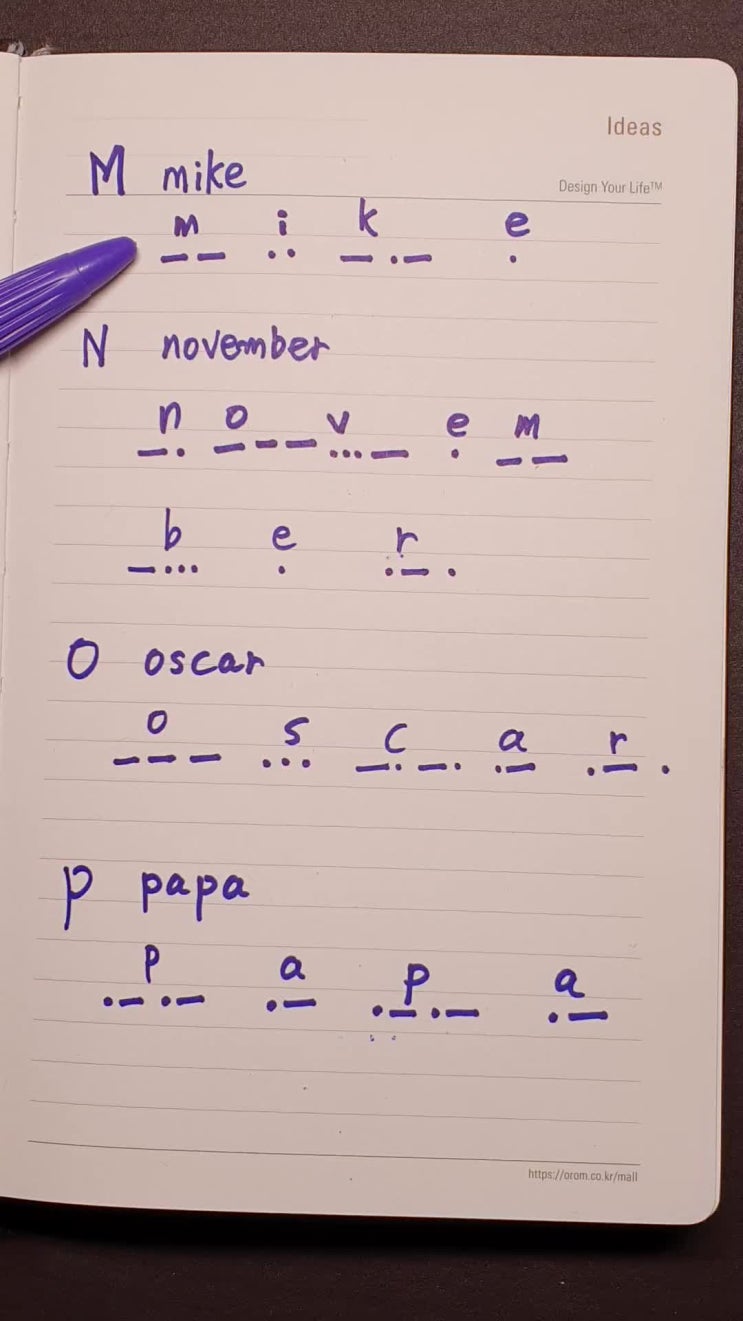 Ideas
M mike
Design Your Life™
m i k e
— — · · — · — ·
N november
n o v e m
— · — — — · · · — · — —
b e r
— · · · · · — ·
O oscar
o s c a r
— — — · · · — · — · · — · — ·
P papa
p a p a
· — · — · — · — · — · —
https://orom.co.kr/mall